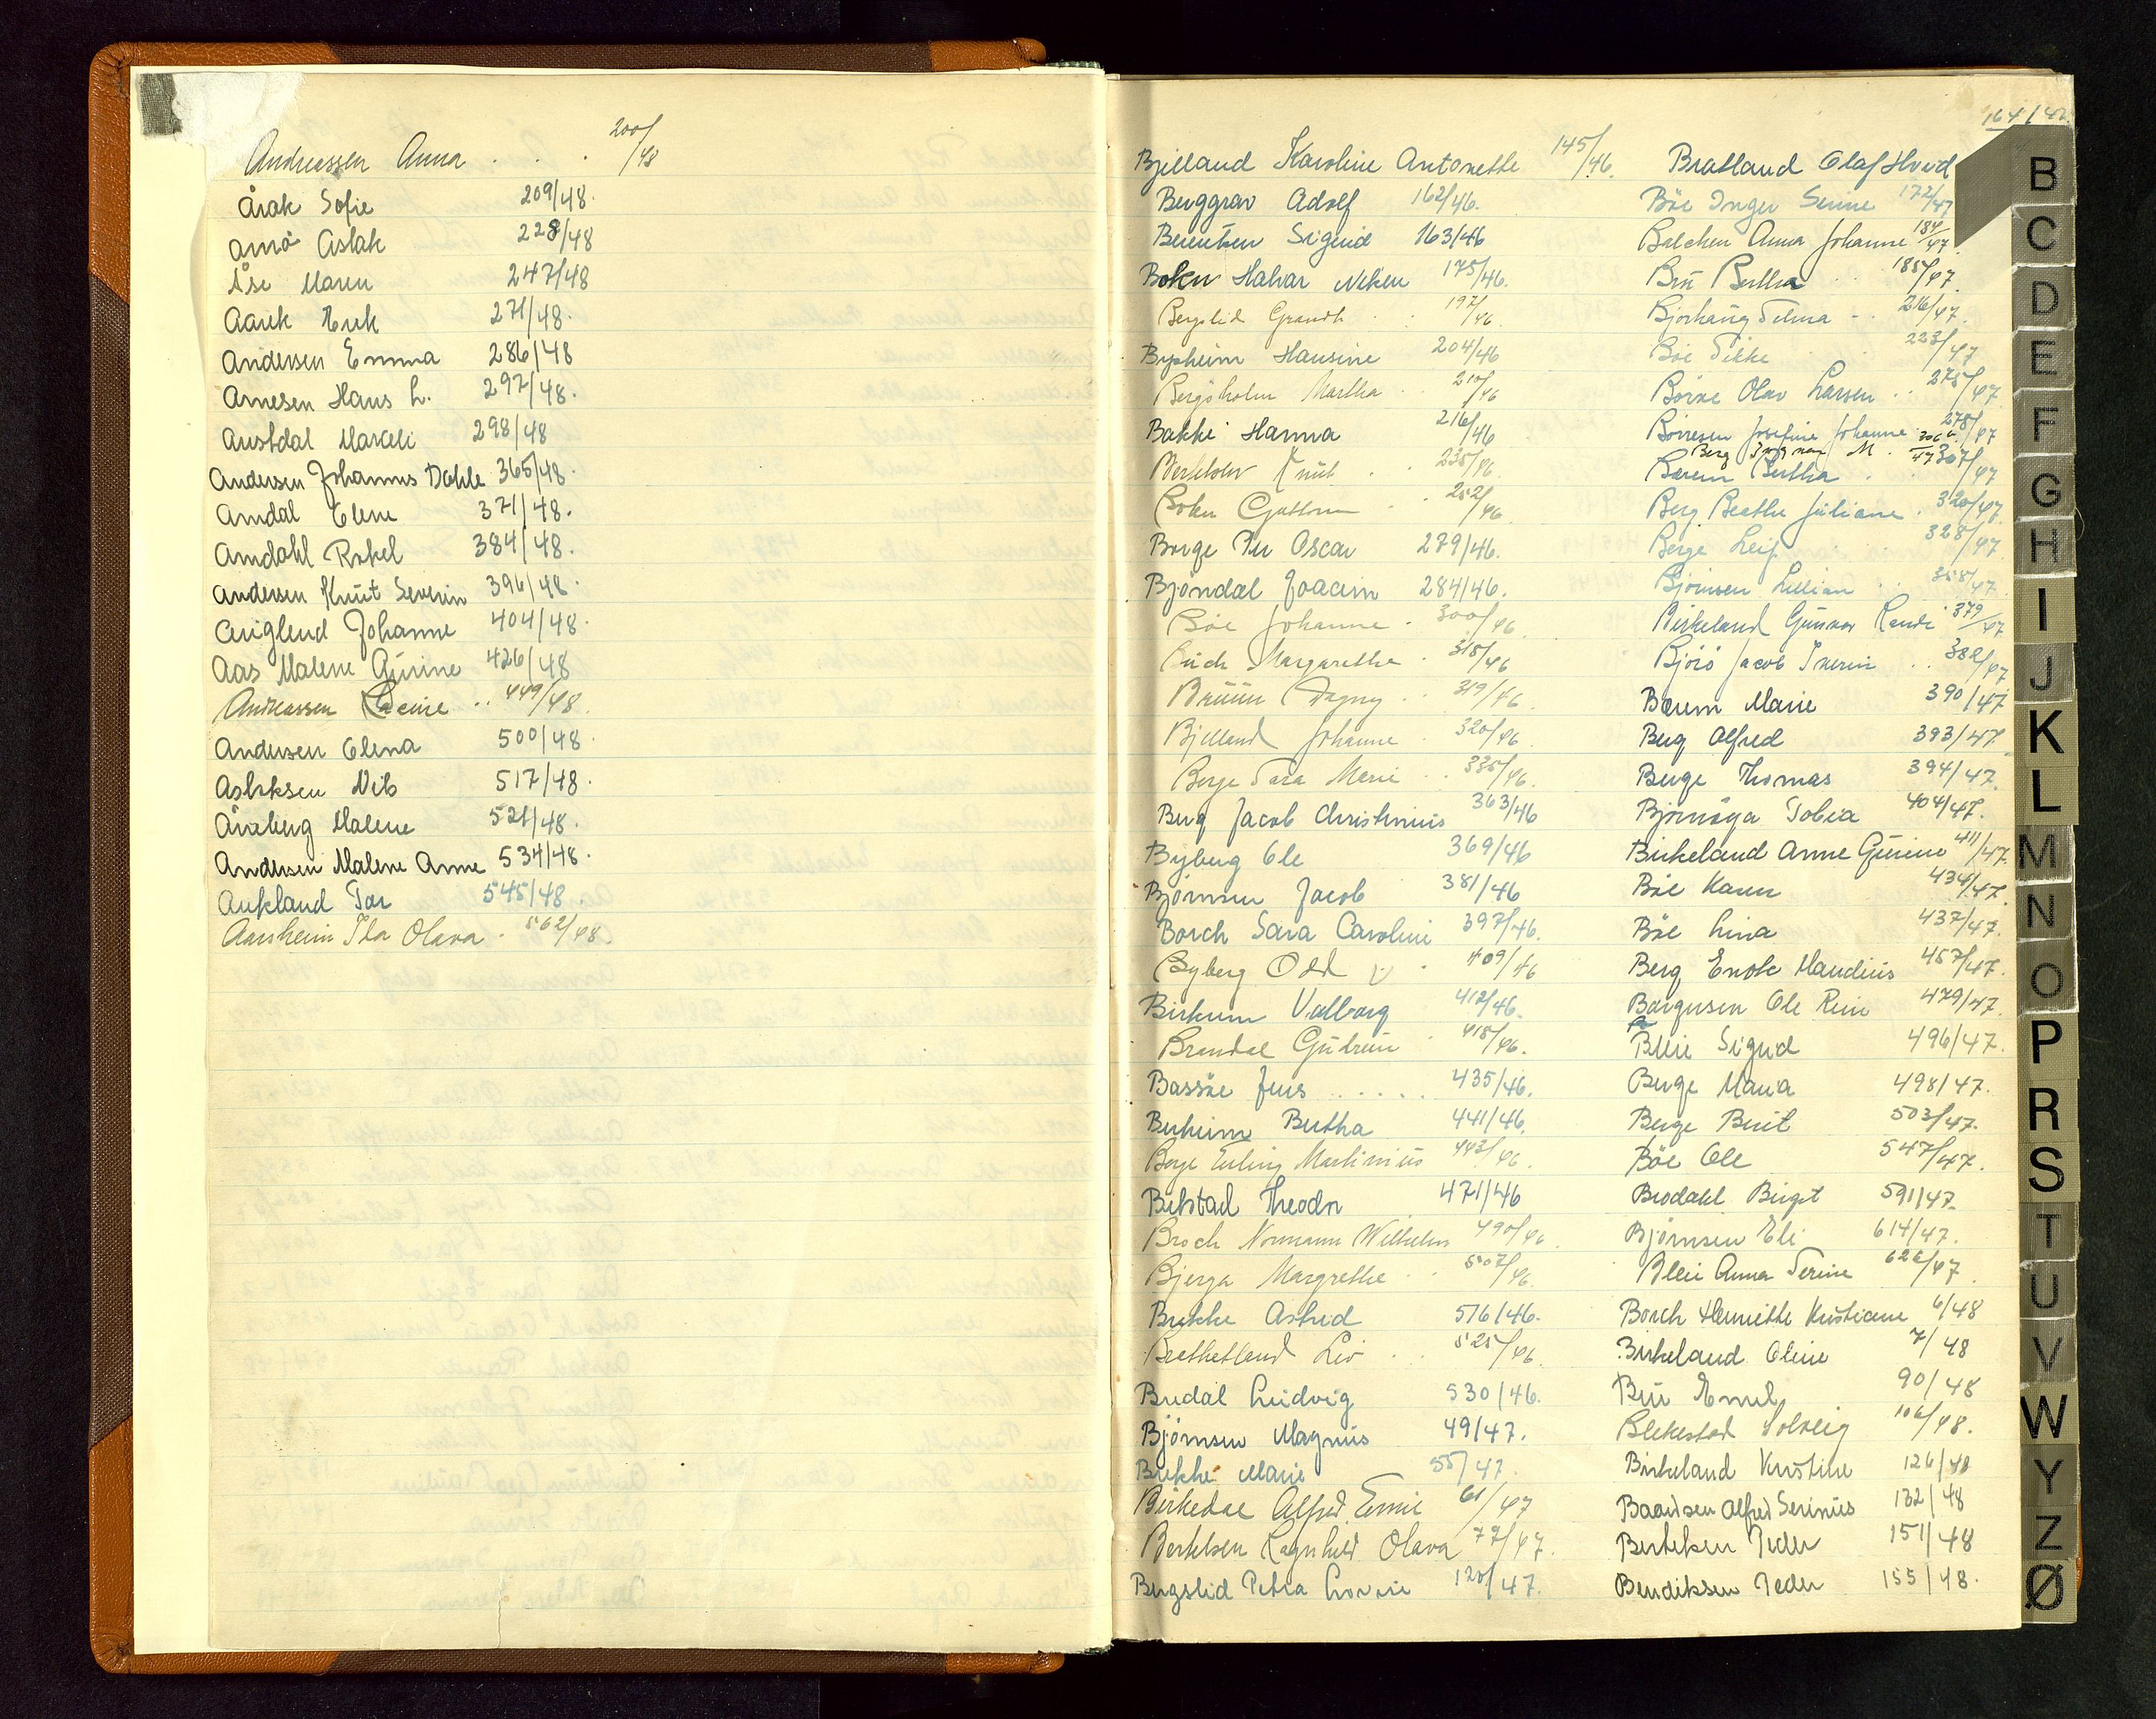 Andreassen Anna . . . 200/48
Årak Sofie 209/48.
Åmö Aslak 228/48
Åse Maren 247/48
Aarek Erik 271/48.
Andersen Emma 286/48
Arnesen Hans L. 297/48.
Austdal Marseli 298/48
Andersen Johannes Dahle 365/48.
Amdal Elene 371/48.
Amdahl Rakel 384/48.
Andersen Knut Severin 396/48.
Johanne 404/48.
Aas Malene Gurine 426/48
Andreassen .. 449/48.
Andersen Elena 500/48.
Aslaksen Nils 517/48.
Malene 521/48.
Andersen Malene Anne 534/48.
Aukland Tor 545/48.
Aarsheim Ila Olava . 562/48.
Bjelland Karoline Antonette 145/46.
Berggrav Adolf 162/46.
Berentsen Sigurd 163/46
Bokn Halvar Niken 175/46.
Bergslid Grandh . . 197/46
Bysheim Hansine 204/46
Bergsholm Martha . 210/46
Bakke Hanna 216/46
Knut . . 235/46.
Bokn Guttorm . . 252/46
Borge Per Oscar 279/46.
Bjöndal Joacim 284/46.
Böe Johanne . 300/46.
Buch Margarethe . 318/46
Bruun Dagny . . 319/46
Bjelland Johanne . 320/46
Berge Sara Marie . . 335/46.
Berg Jacob Christinius 363/46
Byberg Ole 369/46
Björnsen Jacob 381/46
Borch Sara Caroline 397/46.
Byberg Odd . 409/46
Birkum Valborg 412/46.
Brandal Gudrun . 418/46.
Bassöe Jens ..... 435/46.
Berheim Bertha 441/46.
Berge Erling Martinius 443/46.
Bilstad Theodor 471/46
Broch Normann Wilhelm 490/46.
Bjerga Margrethe . . 507/46.
Brekke Astrid 516/46.
Brethetland Liv . . 525/46.
Bredal Ludvig 530/46.
Björnsen Magnus 49/47.
Brekke Marie 55/47.
Birkedal Alfred Emil 61/47
Bertelsen Ragnhild Olava 77/47.
Bergslid Petra Lovise 120/47.
164/47.
Bratland Olaf Hvid
Böe Inger Serine 172/47
Balchen Anna Johanne 184/47.
Brü Bertha . . 185/47.
Bjorhaug Selma . . 216/47.
Böe Sikke . . 223/47
Börve Olav Larsen . . 275/47
Börresen Josefine Johanne . 278/47
Berg Ingvar M . 306/47
Bærem Bertha . 307/47
Berg Beathe Juliane . 320/47
Berge Leif . . 328/47
Björnsen Lillian . . 358/47.
Birkeland Gunvor Randi 379/47
Jacob Iverin . . 382/47
Bærem Marie 390/47
Berg Alfred 393/47.
Berge Thomas 394/47.
Björnöya Tobia 404/47.
Birkeland Anne Gurine 411/47.
Böe Karen 434/47.
Böe Lina 437/47.
Berg Enok Haudius 457/47.
Børgersen Ole Rein 479/47.
Bleie Sigurd 496/47.
Berge Maria 498/47.
Berge Berit 503/47.
Böe Ole 547/47.
Brodahl Birgit 591/47.
Bjørnsen Eli 614/47.
Bleie Anna Serine 626/47.
Borch Henriette Kristiane 6/48
Birkeland Oline 7/48
Brü Emil 90/48
Blekestad Solveig 106/48.
Birkeland Kristine 126/48
Baardsen Alfred Serinius 132/48
Bertelsen Peder 151/48
Bendiksen Peder 155/48.
B
C
D
E
F
G
H
I
J
K
L
M
N
O
P
R
S
T
U
V
W
Y
Z
Ø